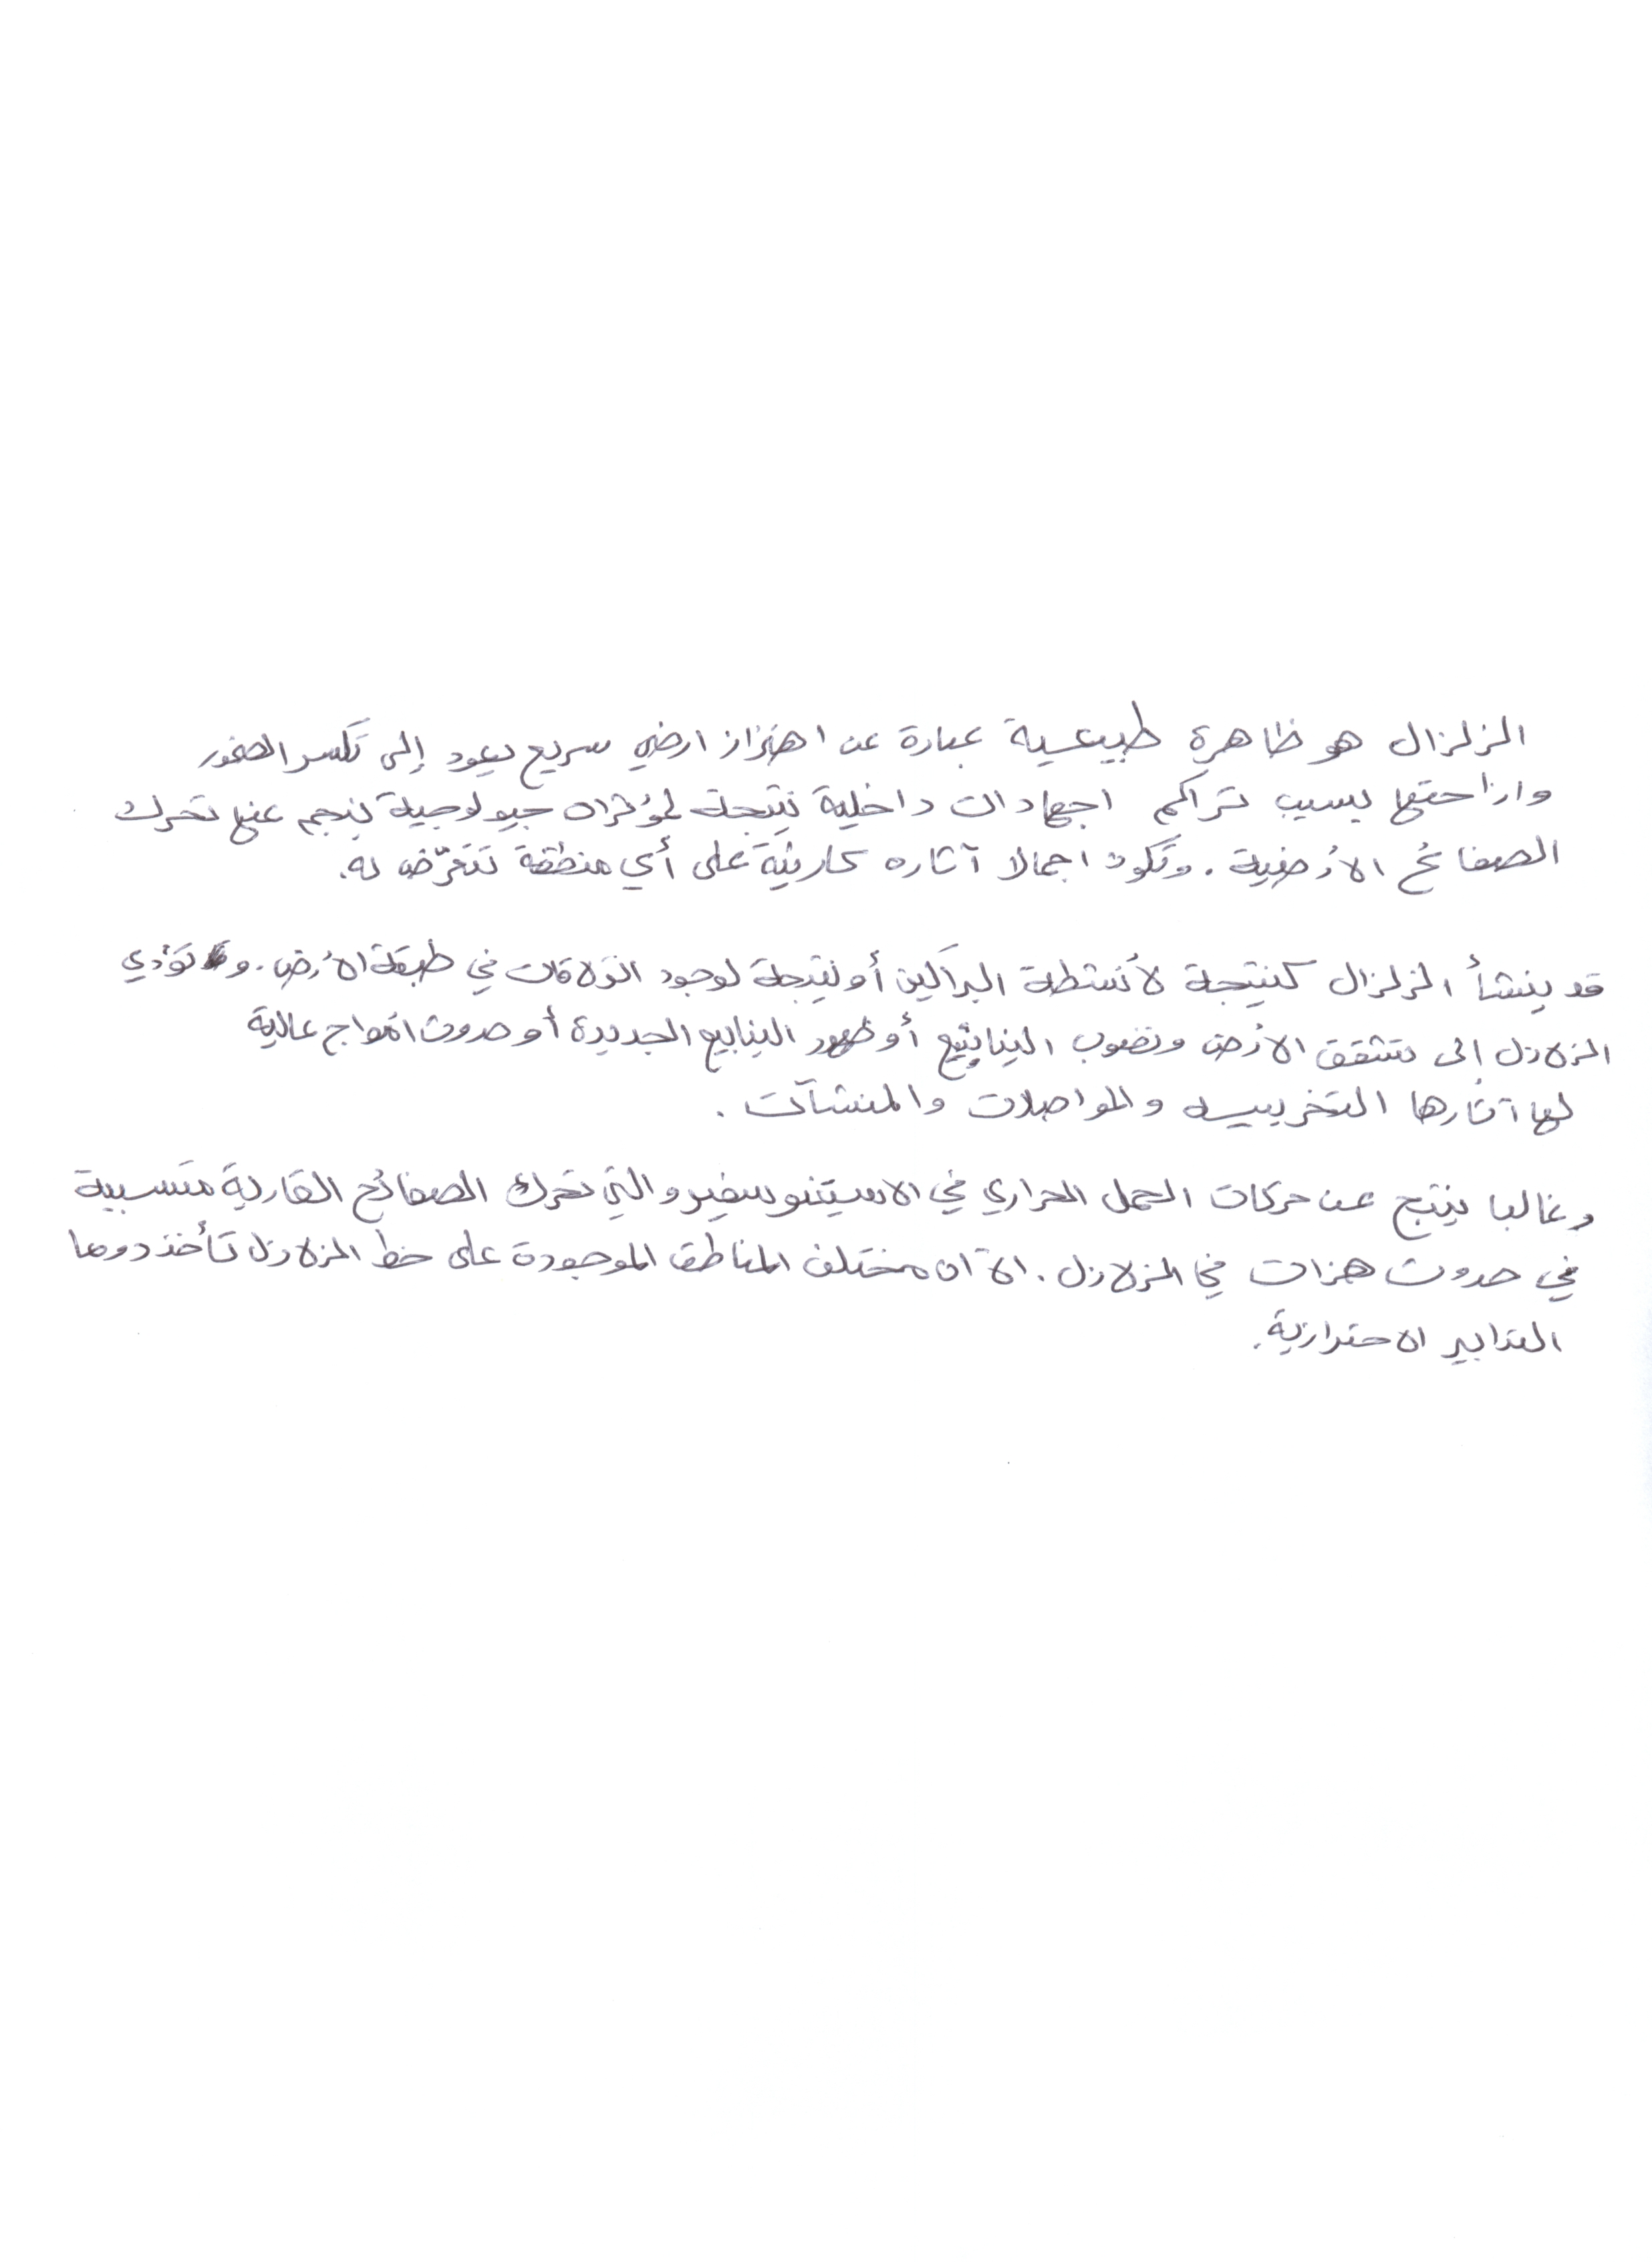 الزلزال هو ظاهرة طبيعية عبارة عن اهتزاز ارضي سريع يعود إلى تكسر الصخور
وازاحتها بسبب تراكم اجهادات داخلية نتيجة لمؤثرات جيولوجية ينجم عنها تحرك
الصفائح الأرضية. وتكون اجمالا آثاره كارثية على أي منطقة تتعرّض له.
قد ينشأ الزلزال كنتيجة لأنشطة البراكين أو نتيجة لوجود انزلاقات في طبقة الأرض. و تؤدي
الزلازل إلى تشقق الأرض ونضوب الينابيع أو ظهور الينابيع الجديدة أو حدوث امواج عالية
لها آثارها التخريبيه والمواصلات والمنشآت.
وغالبا ينتج عن حركات الحمل الحراري في الاستينوسفير والتي تحرك الصفائح القارية متسببة
في حدوث هزات في الزلازل. الآ ان مختلف المناطق الموجودة على خط الزلازل تأخذ دوما
التدابير الاحترازية.